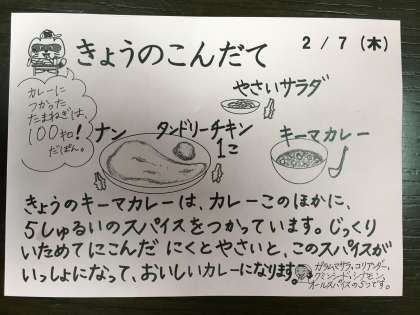 きょうのこんだて
2/7(木)
カレーに
つかった
たまねぎは、
100キロ!
だぱん。
やさいサラダ
ナン
タンドリーチキン
1こ
キーマカレー
きょうのキーマカレーは、カレーこのほかに、
5しゅるいのスパイスをつかっています。じっくり
いためてにこんだ にくとやさいと、このスパイスが
いっしょになって、おいしいカレーになります。
ガラムマサラ、コリアンダー、
クミンシード、シナモン、
オールスパイスの5つです。